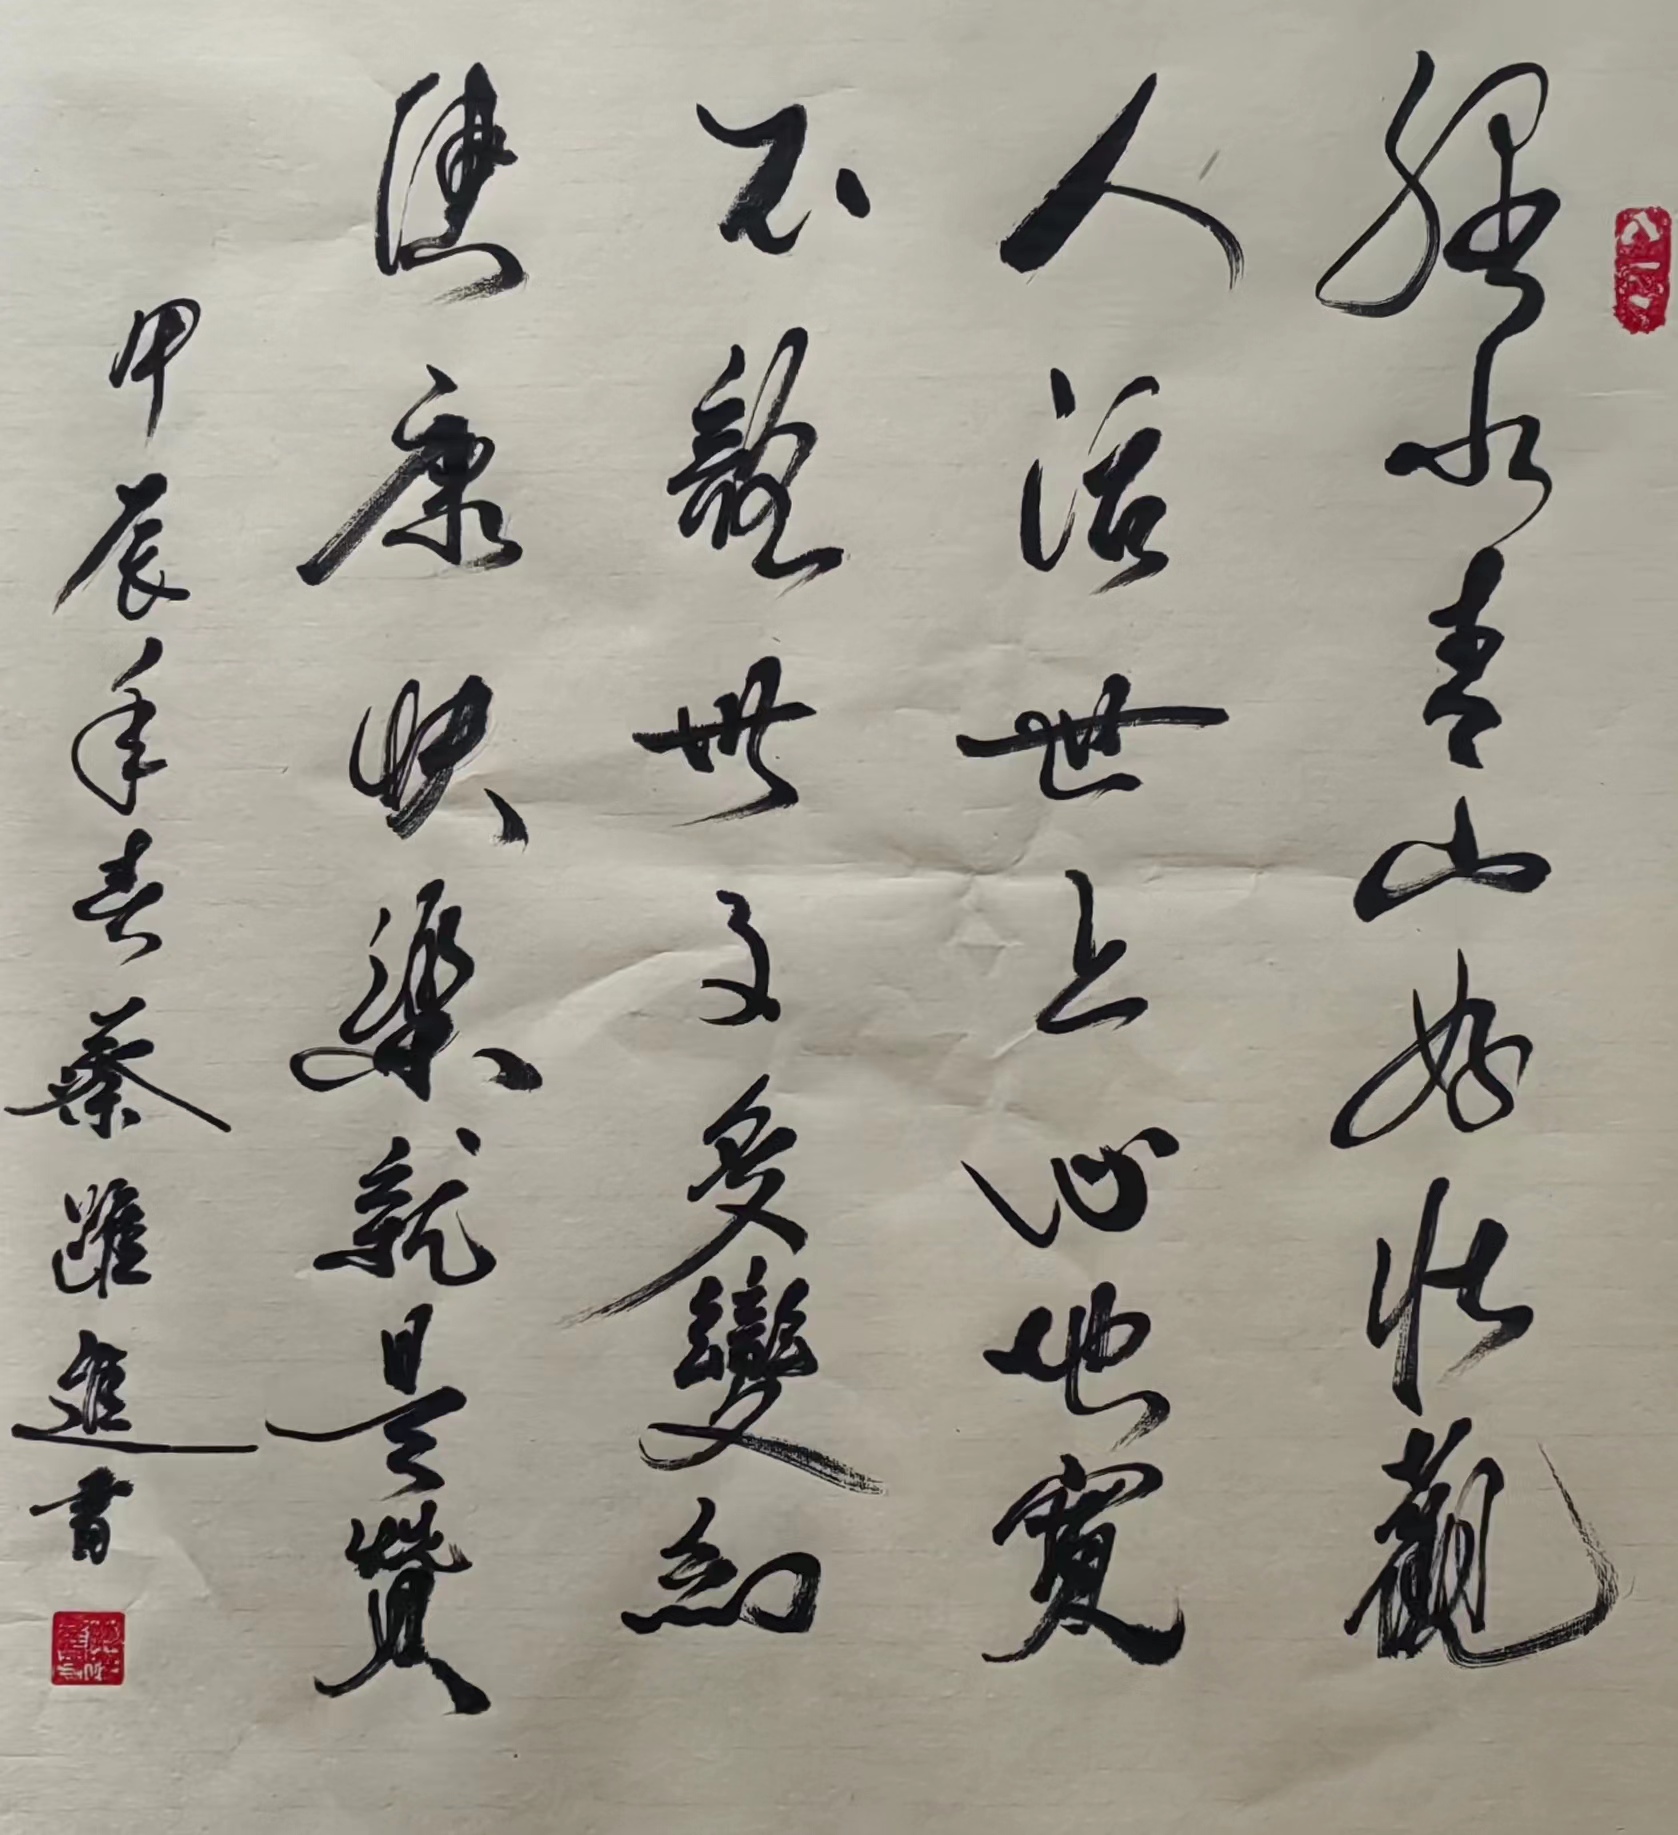 綠水青山好壯觀
人活世上心地寬
不世事多變幻
健康快樂就是贊
甲辰年春蔡躍進書